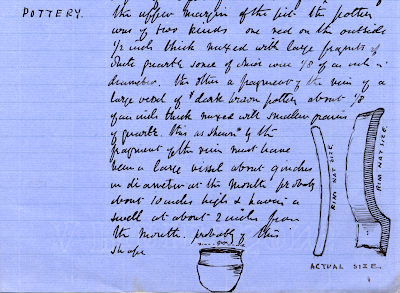 POTTERY.
the upper margin of the pit the pottery
was of two kinds one red on the outside
1/2 inch thick mixed with large fragmts of
white quartz some of which were 1/8 of an inch in
diameter. the other a fragment of the rim of a
large vessel of dark brown pottery about 3/8
of an inch thick mixed with smaller grains
of quartz. this as shewn by the
fragment of the rim must have
been a large vessel about 9 inches
in diameter at the mouth probably
about 10 inches high & having a
swell at about 2 inches from
the mouth. probably of this
shape
RIM NAT SIZE.
RIM NAT SIZE.
ACTUAL SIZE.